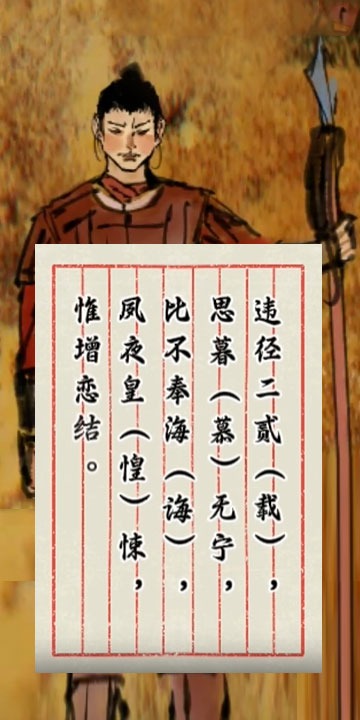 违径二贰（载），
思暮（慕）无宁，
比不奉海（诲），
夙夜皇（惶）悚，
惟增恋结。